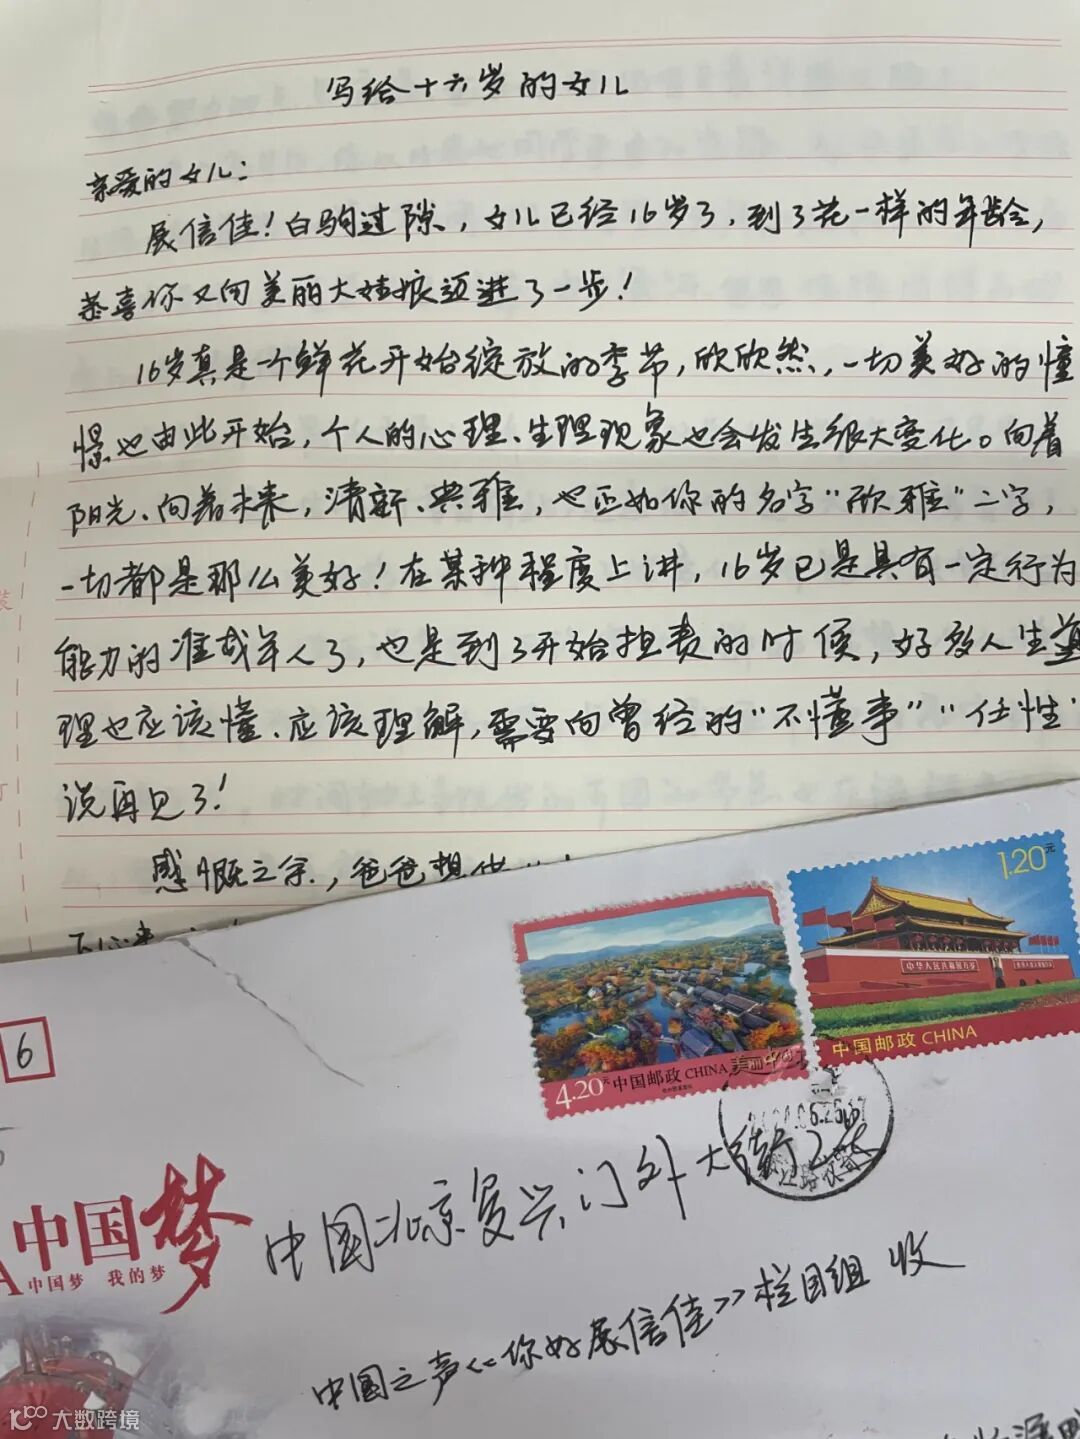 写给十六岁的女儿
亲爱的女儿：
展信佳！白驹过隙，女儿已经16岁了，到了花一样的年龄，
恭喜你又向美丽大姑娘迈进了一步！
16岁真是一个鲜花开始绽放的季节，欣欣然，一切美好的憧
憬也由此开始，个人的心理、生理现象也会发生很大变化。向着
阳光、向着未来，清新、典雅，也正如你的名字“欣雅”二字，
一切都是那么美好！在某种程度上讲，16岁已是具有一定行为
能力的准成年人了，也是到了开始担责的时候，好多人生道
理也应该懂、应该理解，需要向曾经的“不懂事”“任性”
说再见了！
感慨之余，爸爸想
1.20元
中华人民共和国万岁
中国邮政 CHINA
4.20元 中国邮政 CHINA 美丽中国
6
中国梦
中国梦 我的梦
中国北京复兴门外大街2号
中国之声《你好展信佳》栏目组 收
大数跨境